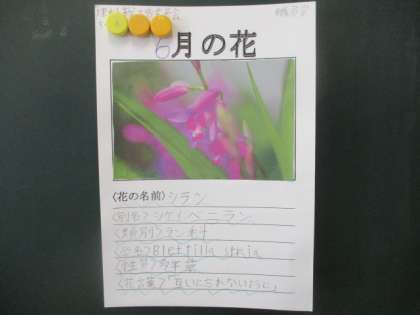 6月の花
〈花の名前〉シラン
〈別名〉シケイ、ベニラン
〈類別〉ラン科
〈学名〉Bletilla striata
〈性質〉多年草
〈花言葉〉「互いに忘れないように」